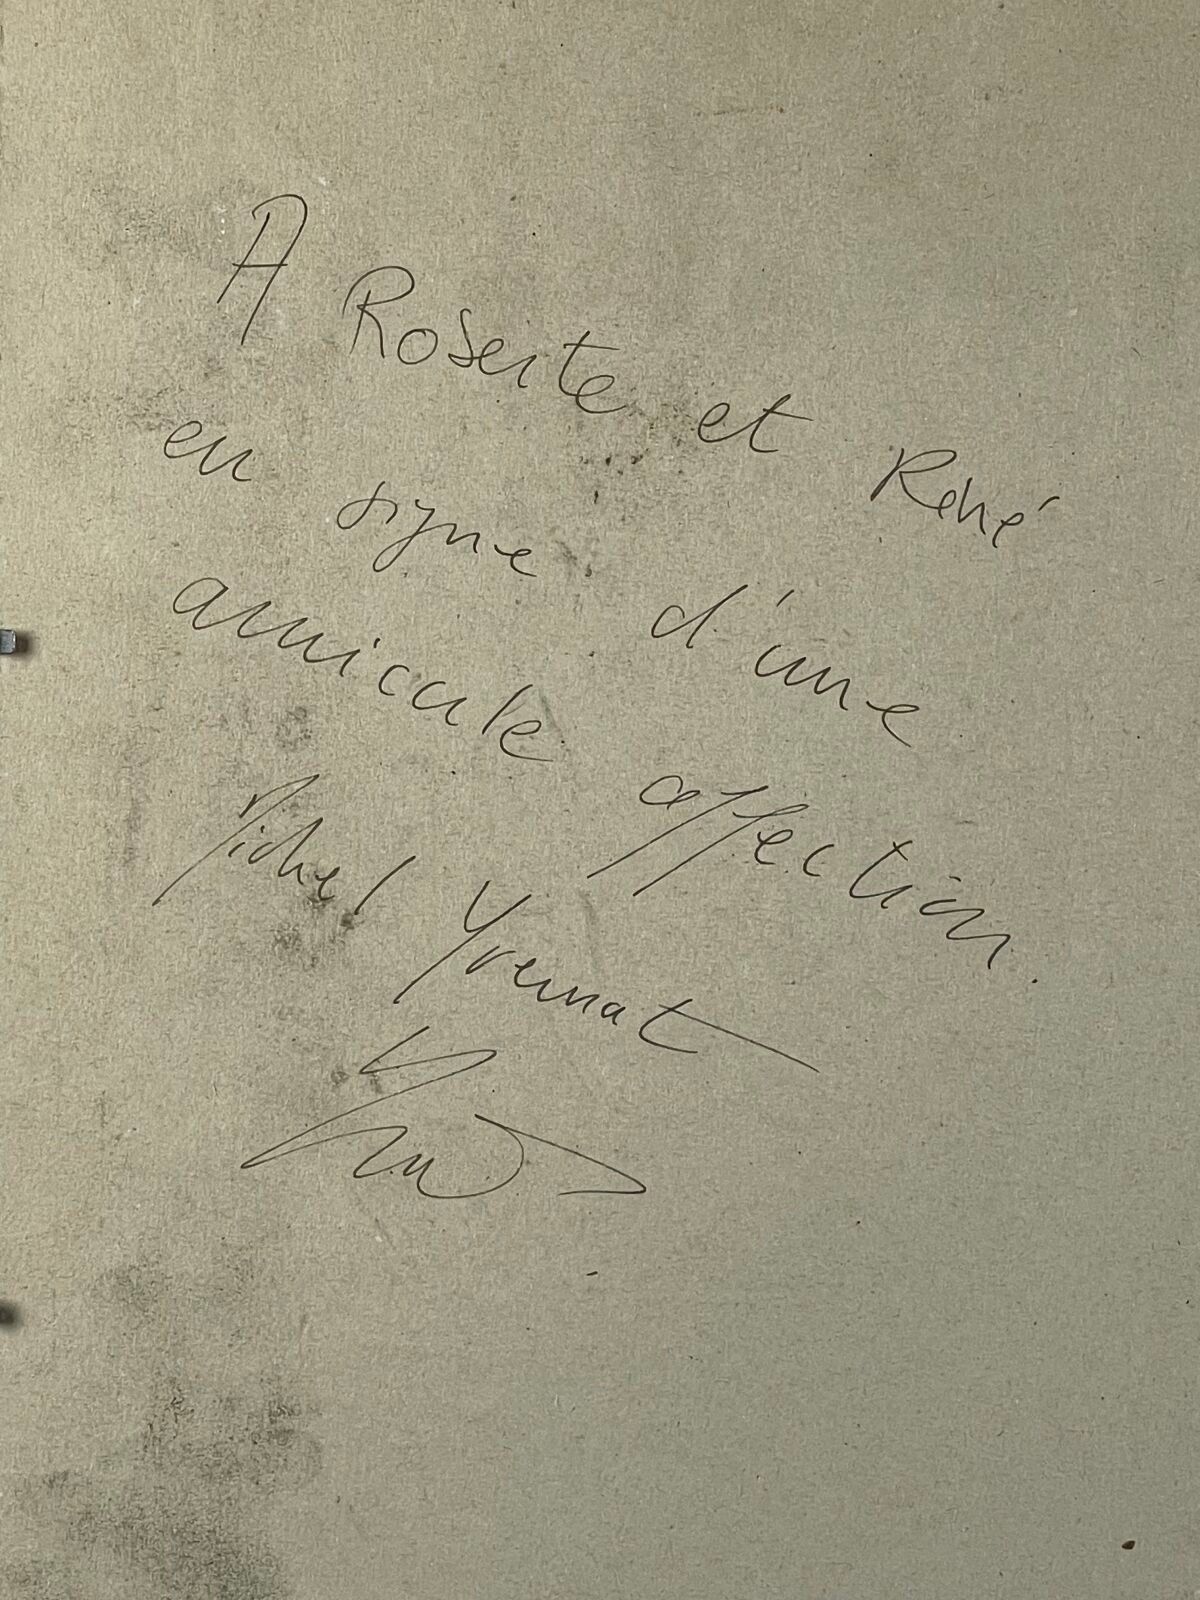 A Roberte et René
en signe d'une
amicale affection.
Michel Yvernat